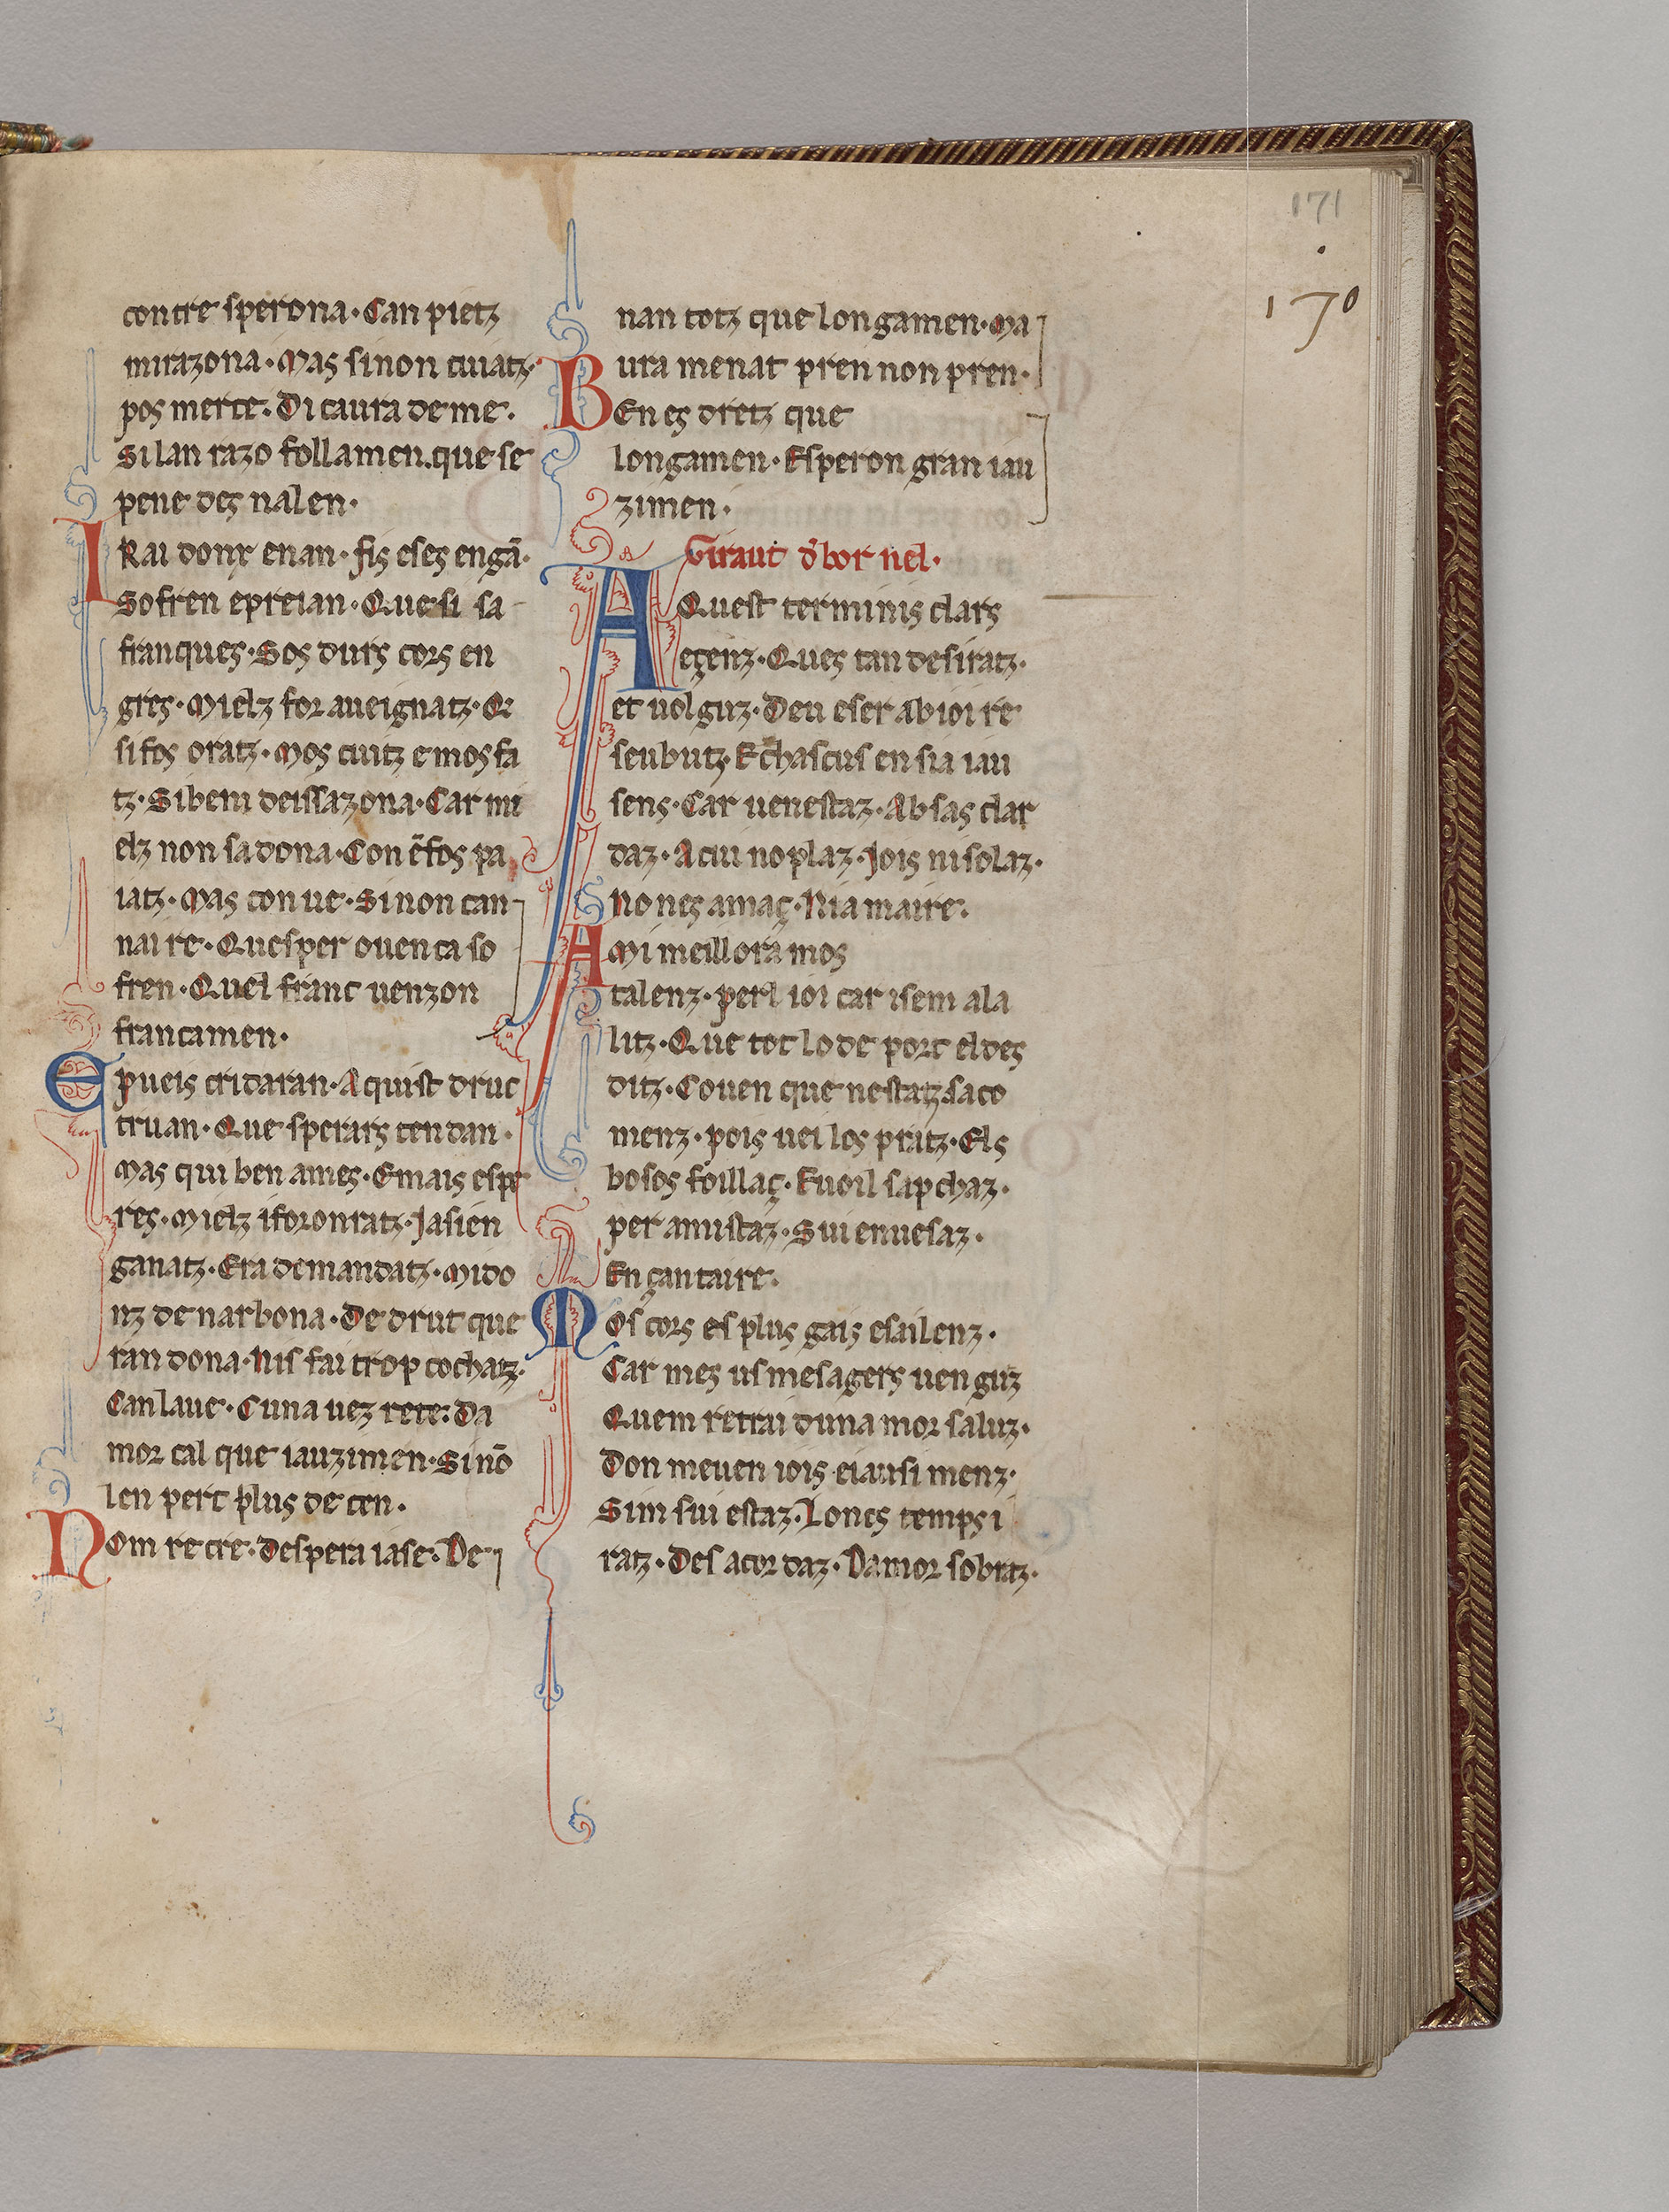 171
170
contre sperona·Can pietz
mirazona·Mas si non cuiatz·
pos merce·Di caura de me·
Si lan razo follamen.que se
pene des nalen·
IRai donx enan·fis eses engã·
Sofren epreian·Que si sa
franques·Sos durs cors en
gres·Mielz for aueignatz·Qe
si fos oratz·Mos cuitz e mos fa
tz·Sibem deissazona·Car mi
elz non sa dona·Con ẽ fos pa
iatz·Mas con ue·Si non can
nai re·Quesper ouenca so
fren·Quel franc uenzon
francamen·
Epueis cridaran·Aquist druc
truan·Que sperars ten dan·
Mas qui ben ames·Emais espe
res·Mielz iforonratz·Jasien
ganatz·Era demandatz·Mido
nz de narbona·De drut que
ran dona·Nis fai trop cochatz·
Can laue·Cuna uez rete·Da
mor cal que iauzimen·Sinõ
len pert plus de cen·
Nom recre·Despera iase·De
nan totz que longamen·Ma
ura menat pren non pren·
BEn es dretz que
longamen·Esperon gran iau
zimen·
Giraut d'bor nel·
AQuest terminis clars
egenz·Ques tan desiratz·
et uolguz·Deu eser ab ioi re
seubutz·Echascus en sia iau
sens·Car uenestaz·Ab sas clar
daz·Acui no plaz·Jois ni solaz·
No nes amaç·Nia maire·
AMi meillora mos
talenz·perl ioi car isem ala
litz·Que tot lo de port eldes
ditz·Couen que nestatz daco
menz·pois uei los pratz·Els
bosos foillaç·Euoil sapchaz·
per amistaz·Sui enuesaz·
En çantaire·
MOs cors es plus gais esailenz·
Car mes us mesagers uenguz
Quem retrai duna mor saluz·
Don meuen iois eiausi menz·
Sim sui estaz·Loncs temps i
ratz·Des acor daz·Damor sobraz·